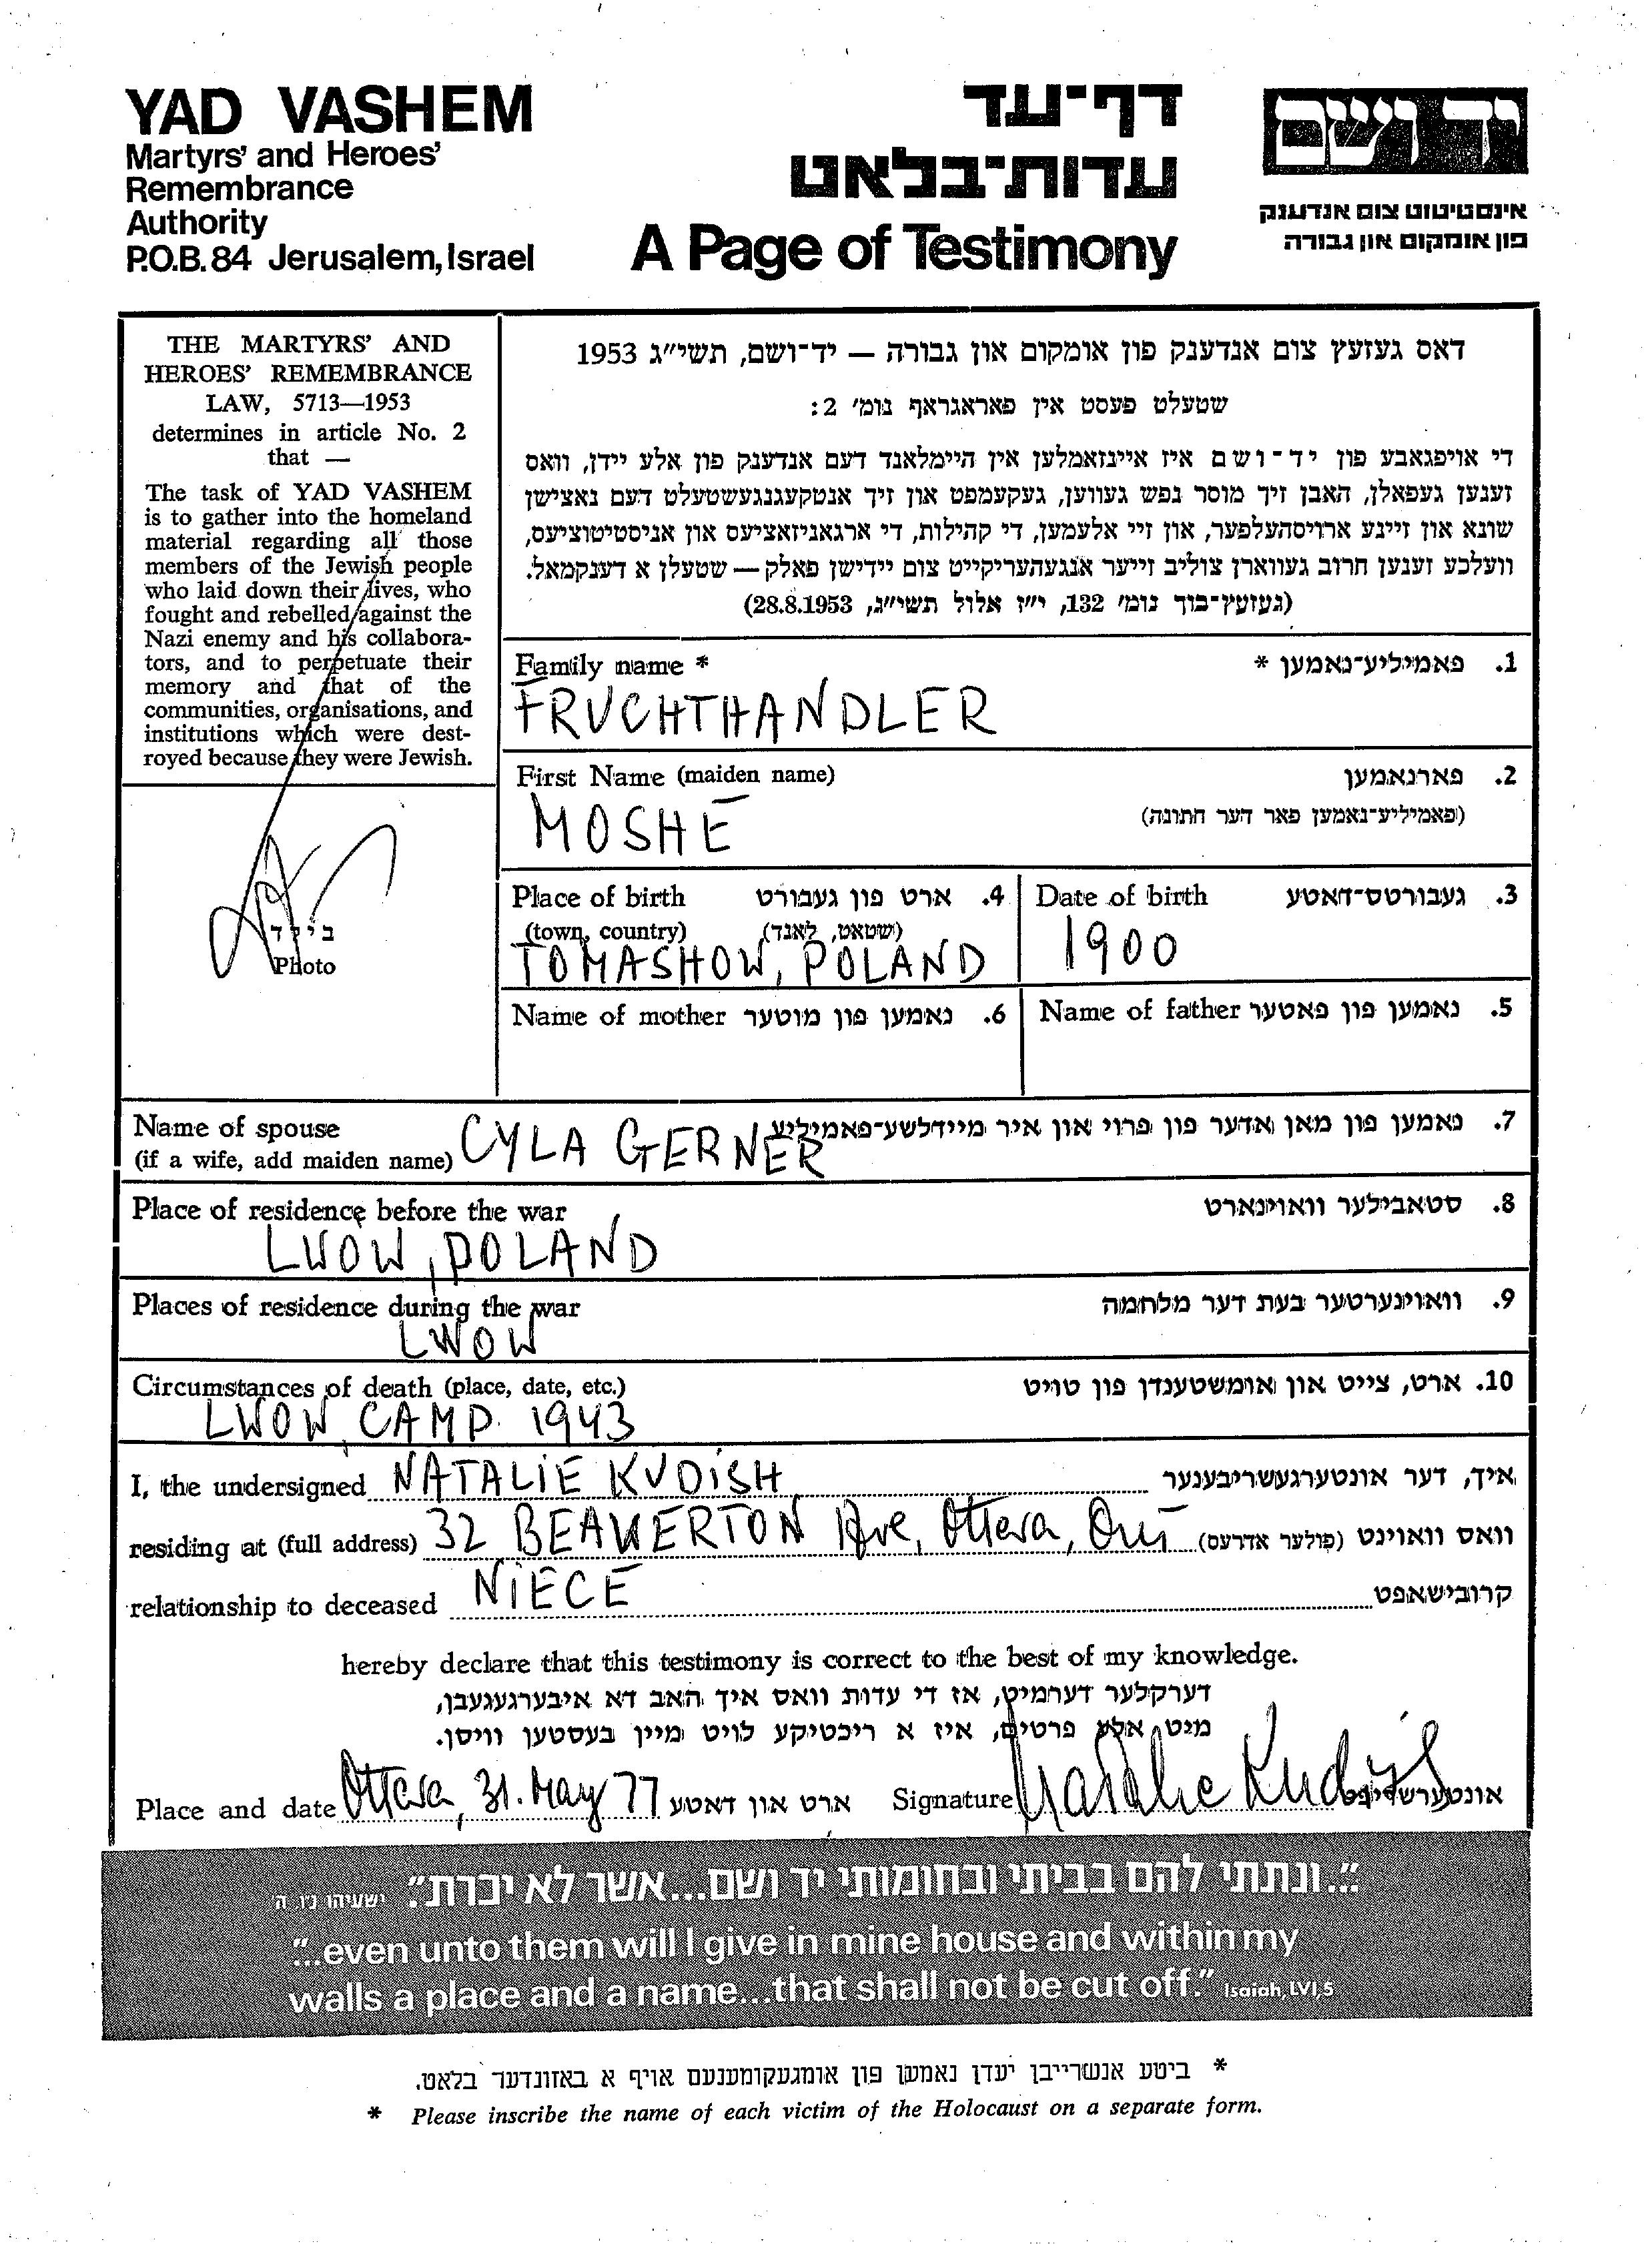 YAD VASHEM
Martyrs' and Heroes'
Remembrance
Authority
P.O.B. 84 Jerusalem, Israel
דף־עד
עדות־בלאט
A Page of Testimony
יד ושם
אינסטיטוט צום אנדענק
פון אומקום און גבורה
THE MARTYRS' AND
HEROES' REMEMBRANCE
LAW, 5713—1953
determines in article No. 2
that —
The task of YAD VASHEM
is to gather into the homeland
material regarding all those
members of the Jewish people
who laid down their lives, who
fought and rebelled against the
Nazi enemy and his collabora-
tors, and to perpetuate their
memory and that of the
communities, organisations, and
institutions which were dest-
royed because they were Jewish.
בילד
Photo
דאס געזעץ צום אנדענק פון אומקום און גבורה — יד־ושם, תשי"ג 1953
שטעלט פעסט אין פאראגראף נומ' 2:
די אויפגאבע פון יד־ושם איז איינזאמלען אין היימלאנד דעם אנדענק פון אלע יידן, וואס
זענען געפאלן, האבן זיך מוסר נפש געווען, געקעמפט און זיך אנטקעגנגעשטעלט דעם נאצישן
שונא און זיינע ארויסהעלפער, און זיי אלעמען, די קהילות, די ארגאניזאציעס און אניסטיטוציעס,
וועלכע זענען חרוב געווארן צוליב זייער אנגעהעריקייט צום יידישן פאלק — שטעלן א דענקמאל.
(געזעץ־בוך נומ' 132, י"ז אלול תשי"ג, 28.8.1953)
Family name * פאמיליע־נאמען * .1
FRUCHTHANDLER
First Name (maiden name) פארנאמען .2
(פאמיליע־נאמען פאר דער חתונה)
MOSHE
Place of birth ארט פון געבורט .4
(town, country) (שטאט, לאנד)
TOMASHOW, POLAND
Date of birth געבורטס־דאטע .3
1900
Name of mother נאמען פון מוטער .6
Name of father נאמען פון פאטער .5
Name of spouse נאמען פון מאן אדער פון פרוי און איר מיידלשע־פאמיליע .7
(if a wife, add maiden name) CYLA GERNER
Place of residence before the war סטאבילער וואוינארט .8
LWOW, POLAND
Places of residence during the war וואוינערטער בעת דער מלחמה .9
LWOW
Circumstances of death (place, date, etc.) ארט, צייט און אומשטענדן פון טויט .10
LWOW, CAMP. 1943
I, the undersigned NATALIE KUDISH איך, דער אונטערגעשריבענער
residing at (full address) 32 BEAVERTON Ave, Ottawa, Ont וואס וואוינט (פולער אדרעס)
relationship to deceased NIECE קרובישאפט
hereby declare that this testimony is correct to the best of my knowledge.
דערקלער דערמיט, אז די עדות וואס איך האב דא איבערגעגעבן,
מיט אלע פרטים, איז א ריכטיקע לויט מיין בעסטען וויסן.
Place and date Ottawa, 31. May 77 ארט און דאטע Signature Natalie Kudish אונטערשריפט
"...ונתתי להם בביתי ובחומותי יד ושם...אשר לא יכרת." ישעיהו נ"ו ה'
"...even unto them will I give in mine house and within my
walls a place and a name...that shall not be cut off." Isaiah, LVI, 5
* ביטע אנשרייבן יעדן נאמען פון אומגעקומענעם אויף א באזונדער בלאט.
* Please inscribe the name of each victim of the Holocaust on a separate form.